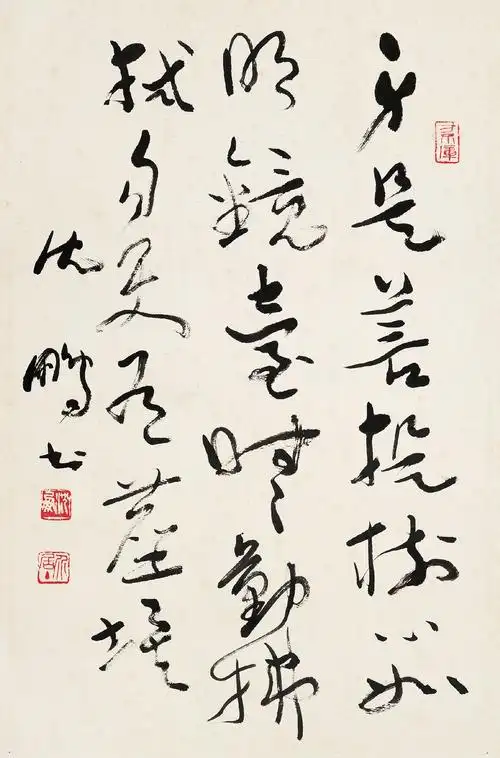 身是菩提樹心如
明鏡臺時時勤拂
拭勿使有塵埃
沈鵬書
沈鵬
介居